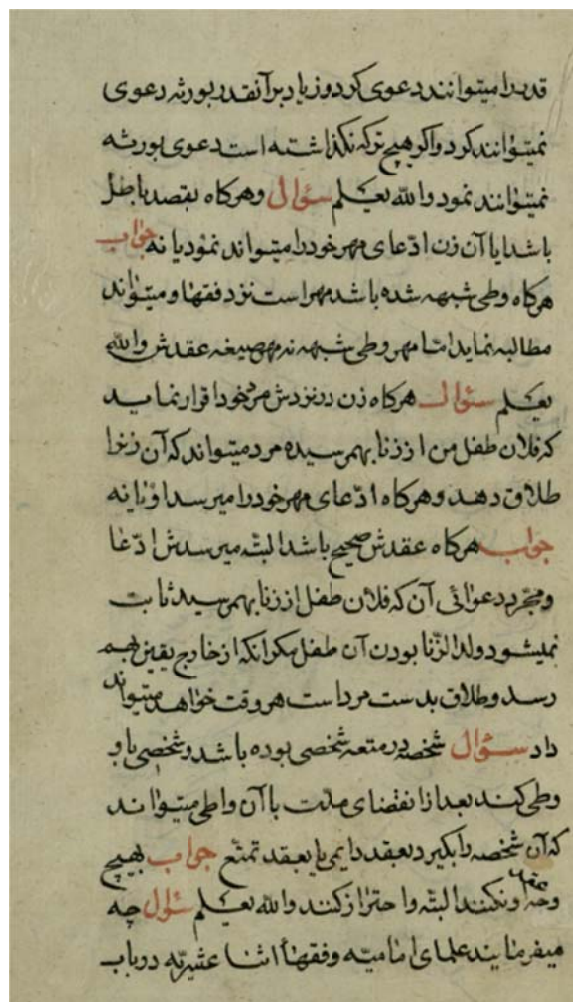 قدر را میتوانند دعوی کرد و زیاد بر آنقدر بورثه دعوی
نمیتوانند کرد و اکر هیچ ترکه نکذاشته است دعوی بورثه
نمیتوانند نمود والله یعلم سؤال وهرکاه بقصد باطل
باشد ایا آن زن ادّعای مهر خود را میتواند نمود یا نه جواب
هرکاه وطی شبهه شده باشد مهر است نزد فقها و میتواند
مطالبه نماید امّا مهر وطی شبهه نه مهر صیغه عقدش والله
یعلم سؤال هرکاه زن در نزدش مرد خود اقرار نماید
که فلان طفل من از زنا بهمرسیده مرد میتواند که آن زنرا
طلاق دهد وهرکاه ادّعای مهر خود را میرسد او یا نه
جواب هرکاه عقدش صحیح باشد البتّه میرسدش ادّعا
ومجرّد دعوائی آن که فلان طفل از زنا بهمرسید ثابت
نمیشود ولد الزّنا بودن آن طفل مکر انکه از خارج یقین بهم
رسد وطلاق بدست مرد است هر وقت خواهد میتواند
داد سؤال شخصه در متعه شخصی بوده باشد وشخصی با و
وطی کند بعد از انقضای مدّت با آن واطی میتواند
که آن شخصه را بکیرد بعقد دایمی یا بعقد تمتّع جواب بهیچ
وجه او نکند البتّه واحتراز کند والله یعلم سؤال چه
میفرمایند علمای امامیّه وفقهاأ اثنا عشریّه در باب